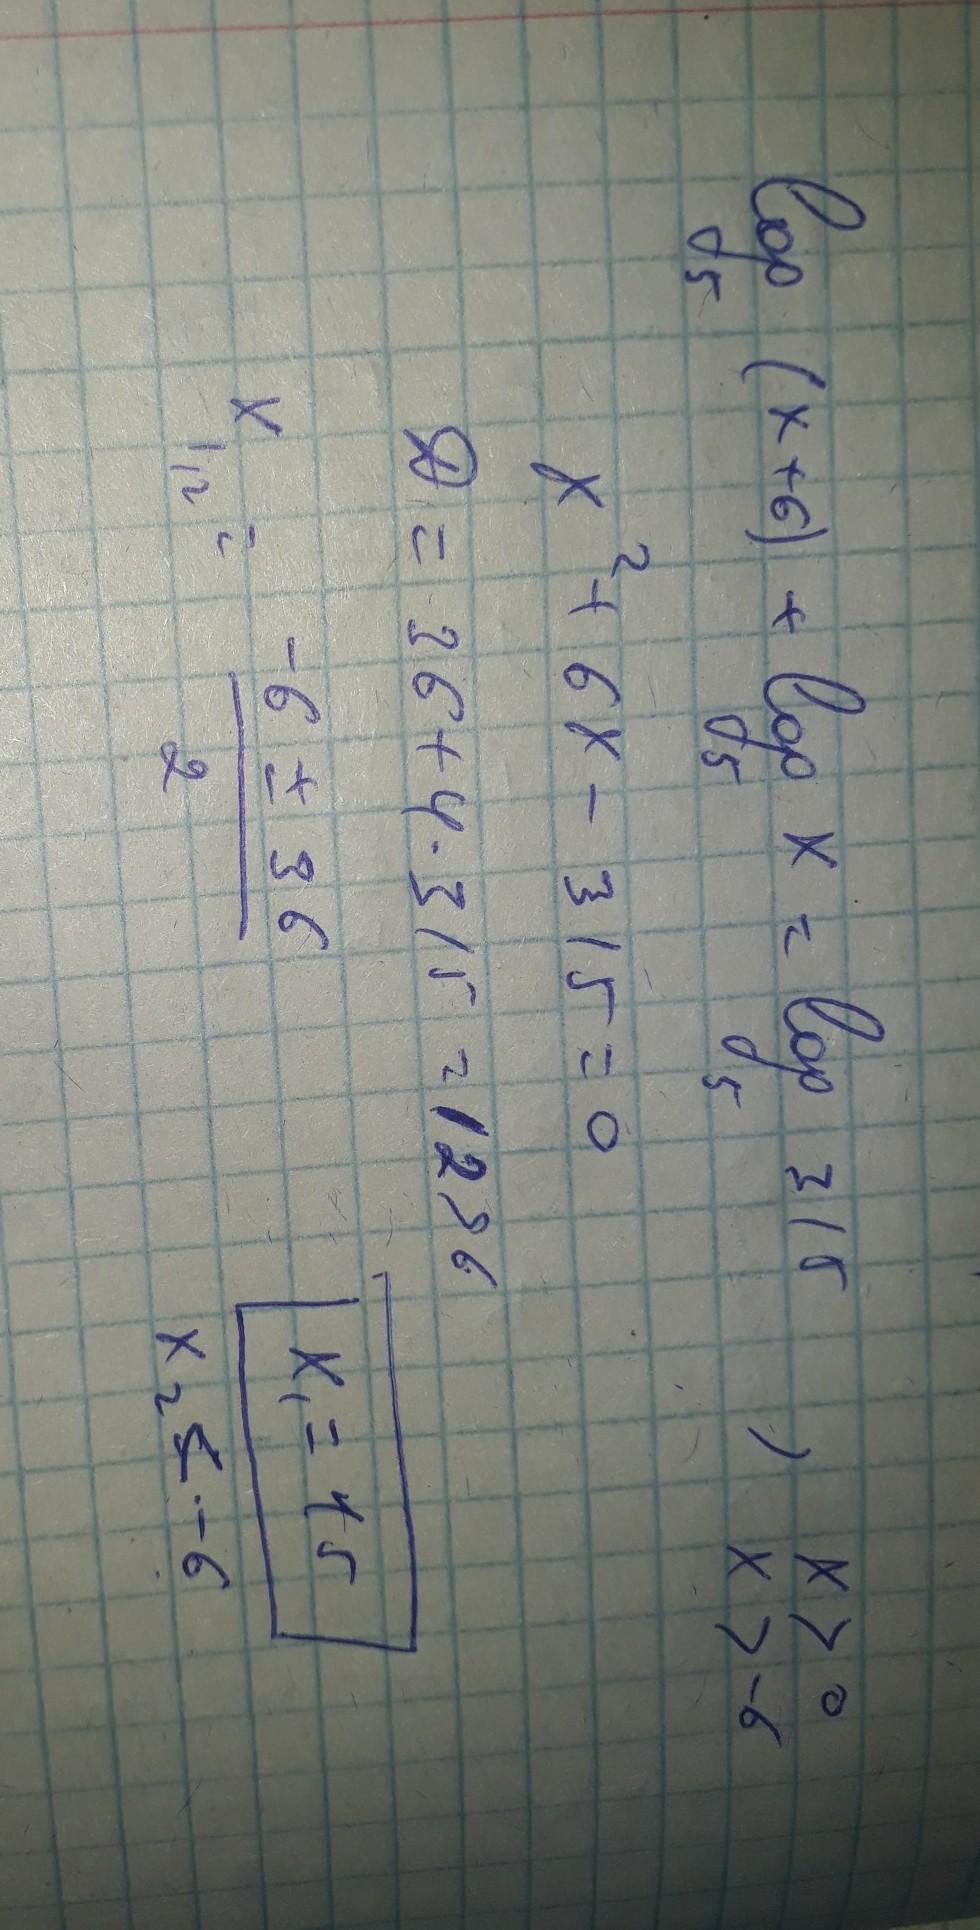 log₅ (x+6) + log₅ x = log₅ 315 , x > 0
x > -6
x² + 6x - 315 = 0
D = 36 + 4·315 = 1296
x₁,₂ = (-6 ± 36)/2
x₁ = 15
x₂ ≤ -6